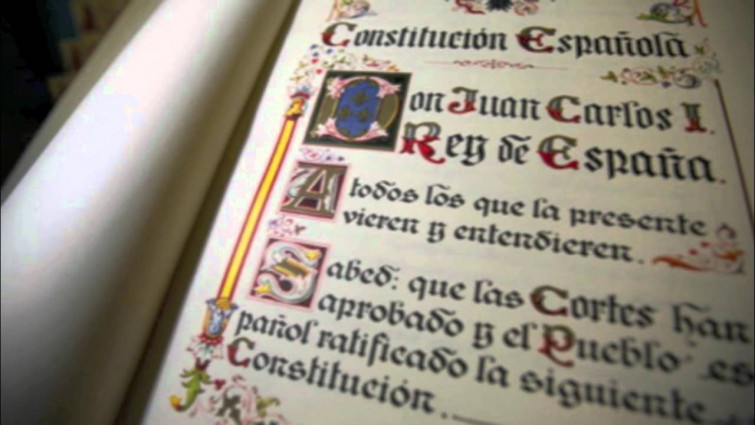 Constitución Española
Don Juan Carlos I.
Rey de España.
A todos los que la presente
vieren y entendieren.
Sabed: que las Cortes han
aprobado y el Pueblo es
pañol ratificado la siguiente
Constitución.